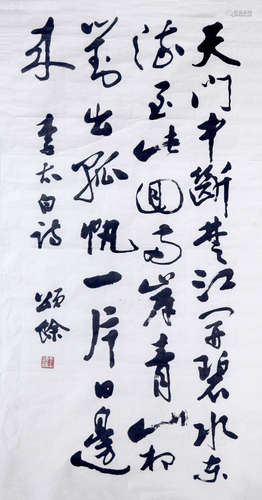 天門中斷楚江开碧水东
流至此回两岸青山相
對出孤帆一片日邊
来
李太白诗
頌餘